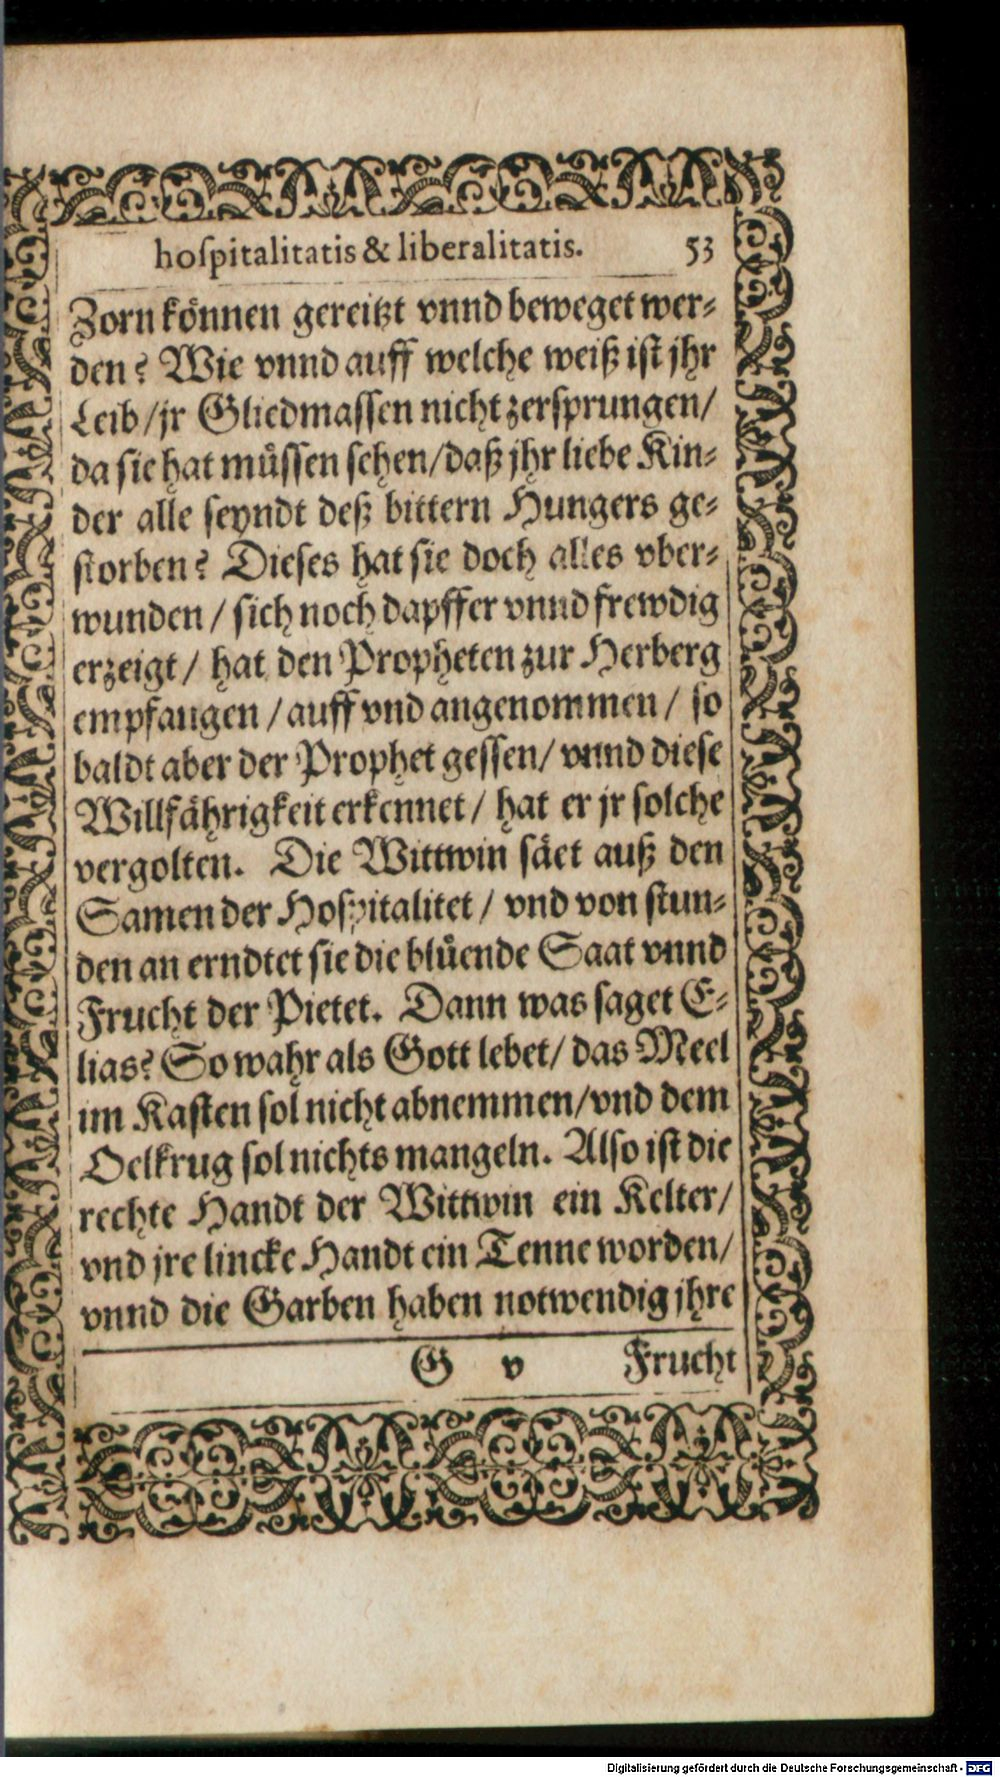 hoſpitalitatis & liberalitatis. 53
Zorn können gereitzt vnnd beweget wer⸗
den? Wie vnnd auff welche weiß iſt jhr
Leib / jr Gliedmaſſen nicht zerſprungen /
da ſie hat müſſen ſehen / daß jhr liebe Kin⸗
der alle ſeyndt deß bittern Hungers ge⸗
ſtorben? Dieſes hat ſie doch alles vber⸗
wunden / ſich noch dapffer vnnd frewdig
erzeigt / hat den Propheten zur Herberg
empfangen / auff vnd angenommen / ſo
baldt aber der Prophet geſſen / vnnd dieſe
Willfährigkeit erkennet / hat er jr ſolche
vergolten. Die Wittwin ſäet auß den
Samen der Hoſpitalitet / vnd von ſtun⸗
den an erndtet ſie die blüende Saat vnnd
Frucht der Pietet. Dann was ſaget E⸗
lias? So wahr als Gott lebet / das Meel
im Kaſten ſol nicht abnemmen / vnd dem
Oelkrug ſol nichts mangeln. Alſo iſt die
rechte Handt der Wittwin ein Kelter /
vnd jre lincke Handt ein Tenne worden /
vnnd die Garben haben notwendig jhre
G v Frucht
Digitalisierung gefördert durch die Deutsche Forschungsgemeinschaft - DFG